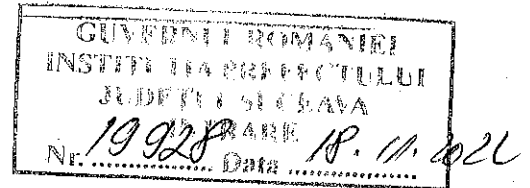 GUVERNUL ROMÂNIEI
INSTITUȚIA PREFECTULUI
JUDEȚUL SUCEAVA
INTRARE
Nr. 19928 Data 18.11.2022